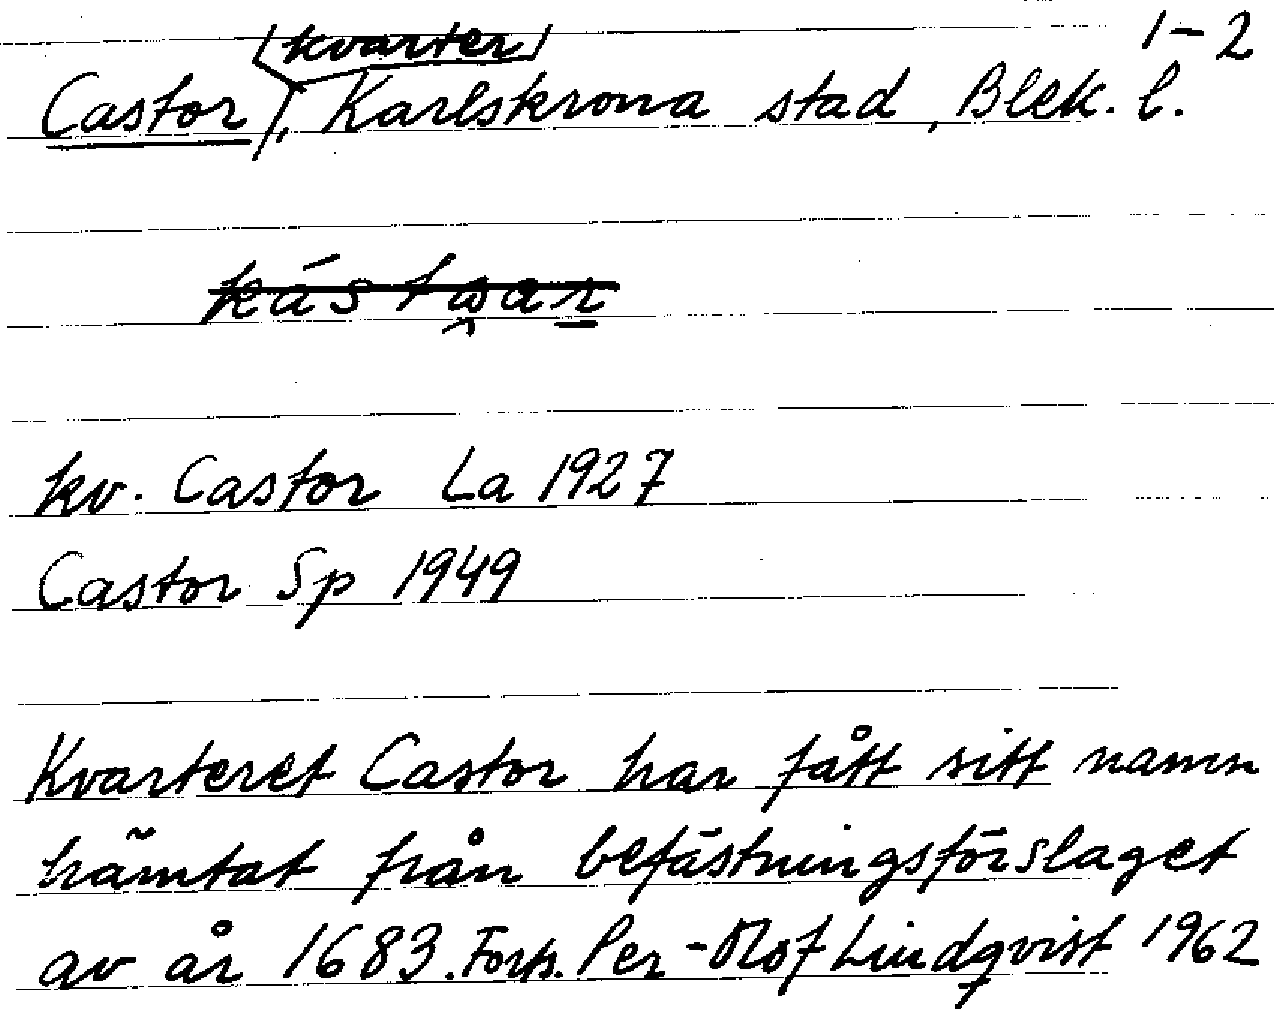 1-2
kvarter
Castor, Karlskrona stad, Blek. l.
kv. Castor La 1927
Castor Sp 1949
Kvarteret Castor har fått sitt namn
hämtat från befästningsförslaget
av år 1683. Forts. Per-Olof Lindqvist 1962